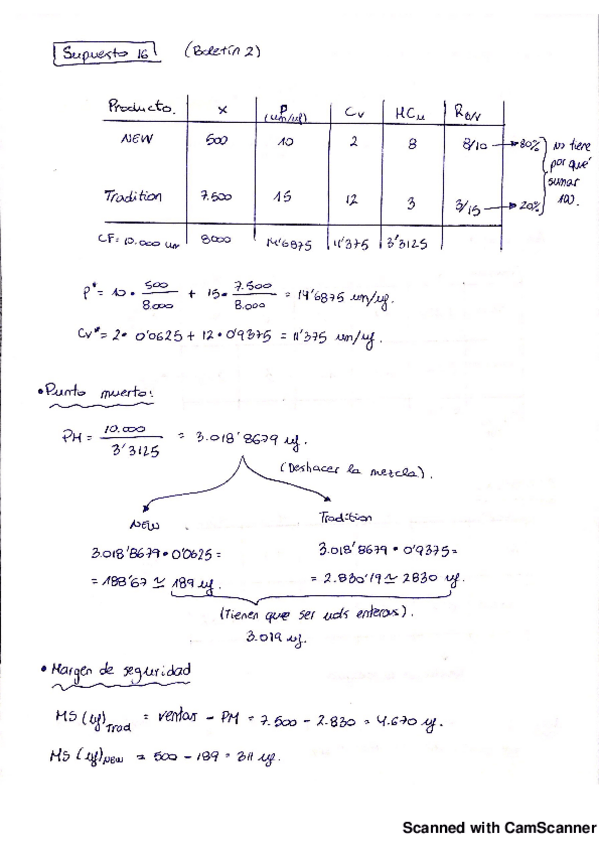 Supuesto 16 (Boletín 2)
Producto. x P (um/uf) Cv MCu RB/V
NEW 500 10 2 8 8/10 → 80% no tiene por qué sumar 100.
Tradition 7.500 15 12 3 3/15 → 20%
CF = 10.000 um 8000 14'6875 11'375 3'3125
P* = 10 · 500/8.000 + 15 · 7.500/8.000 = 14'6875 um/uf.
Cv* = 2 · 0'0625 + 12 · 0'9375 = 11'375 um/uf.
• Punto muerto:
PM = 10.000/3'3125 = 3.018'8679 uf.
(Deshacer la mezcla).
NEW Tradition
3.018'8679 · 0'0625 = 3.018'8679 · 0'9375 =
= 188'67 ≃ 189 uf. = 2.830'19 ≃ 2830 uf.
(Tienen que ser uds enteras).
3.019 uf.
• Margen de seguridad
MS (uf)Trad = ventas - PM = 7.500 - 2.830 = 4.670 uf.
MS (uf)NEW = 500 - 189 = 311 uf.
Scanned with CamScanner